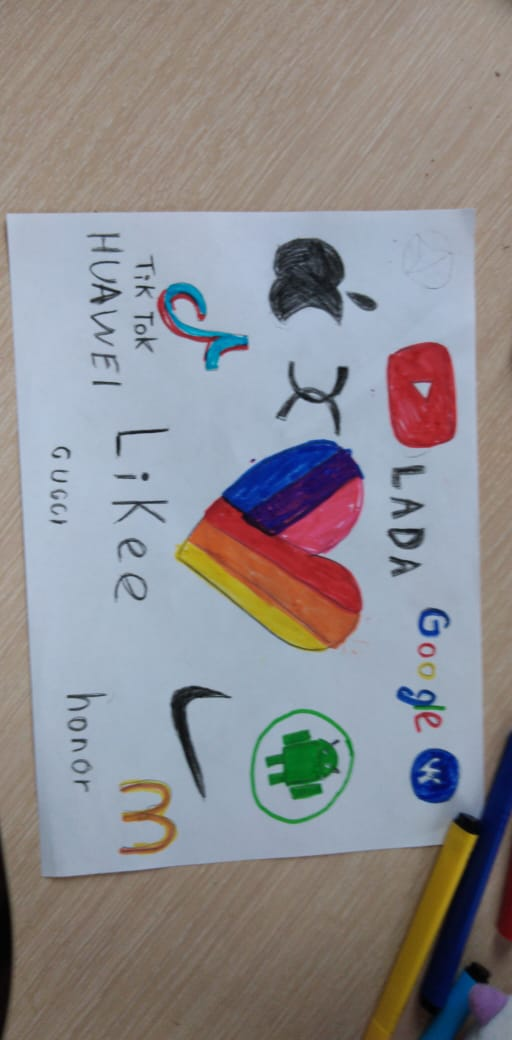 LADA
Google
VK
Tik Tok
HUAWEI
LiKee
GUCCI
honor
m